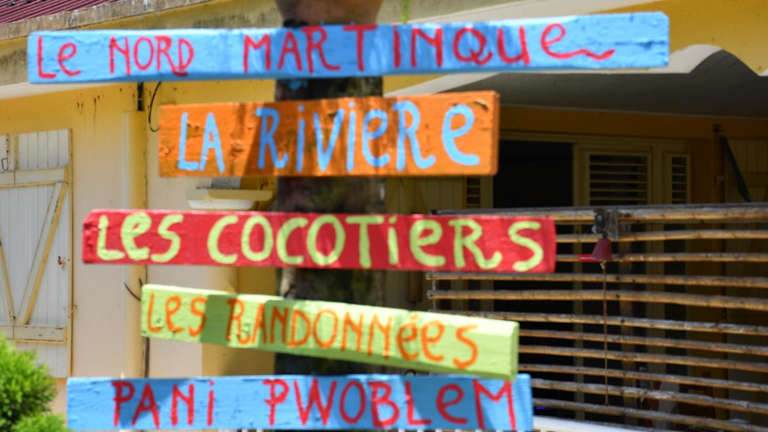 Le NORD MARTINIQUE
LA RIVIERE
Les COCOTIERS
Les RANDONNÉES
PANI PWOBLEM